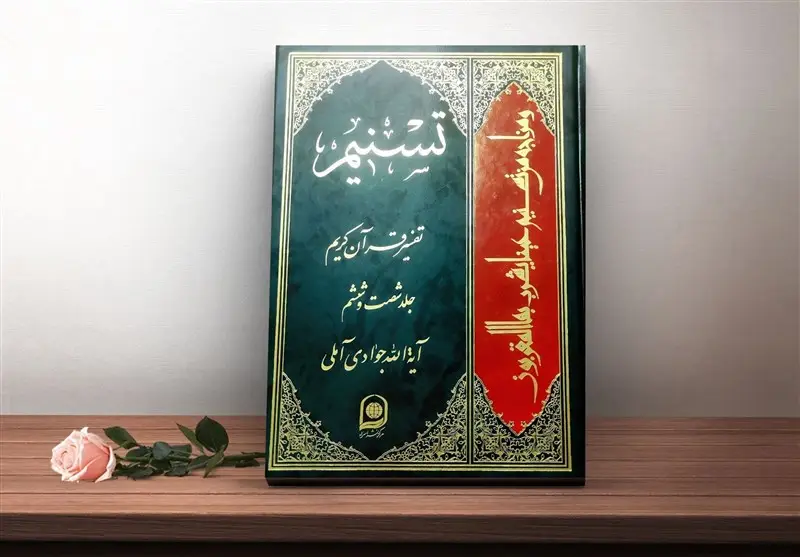 تسنیم
تفسیر قرآن کریم
جلد شصت و ششم
آیة الله جوادی آملی
مرکز نشر اسراء
ومزاجه من تسنیم عینا یشرب بها المقربون